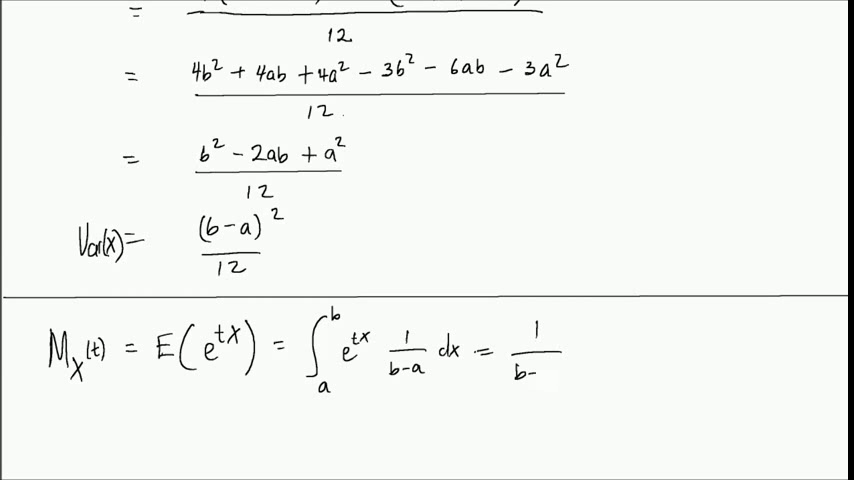 =
12
= 4b² + 4ab + 4a² - 3b² - 6ab - 3a²
12
= b² - 2ab + a²
12
Var(X) = (b-a)²
12
M_X(t) = E(e^{tX}) = ∫_a^b e^{tx} 1/(b-a) dx = 1/(b-